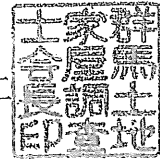 群馬土地
家屋調査
士會員印